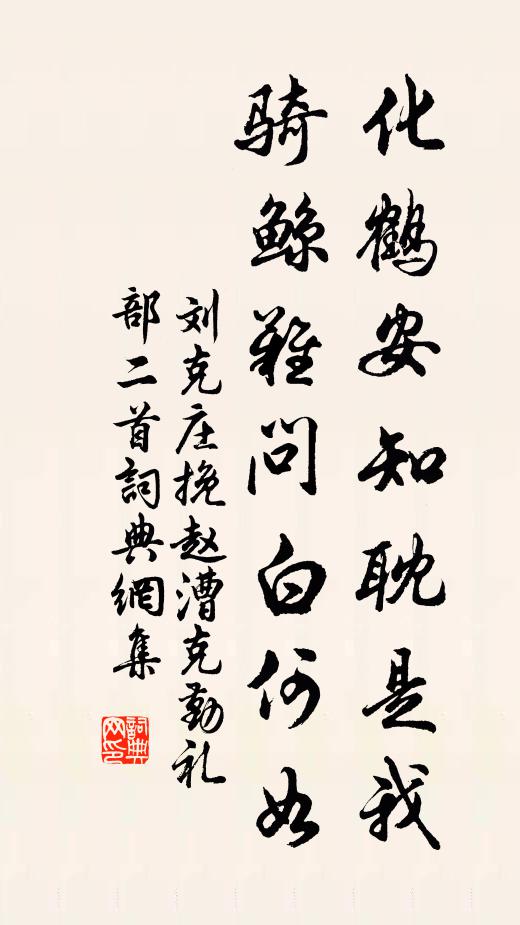 化鹤安知耽是我
骑鲸难问白何如
刘克庄挽赵漕克勤礼
部二首詞典網集
詞典
网印